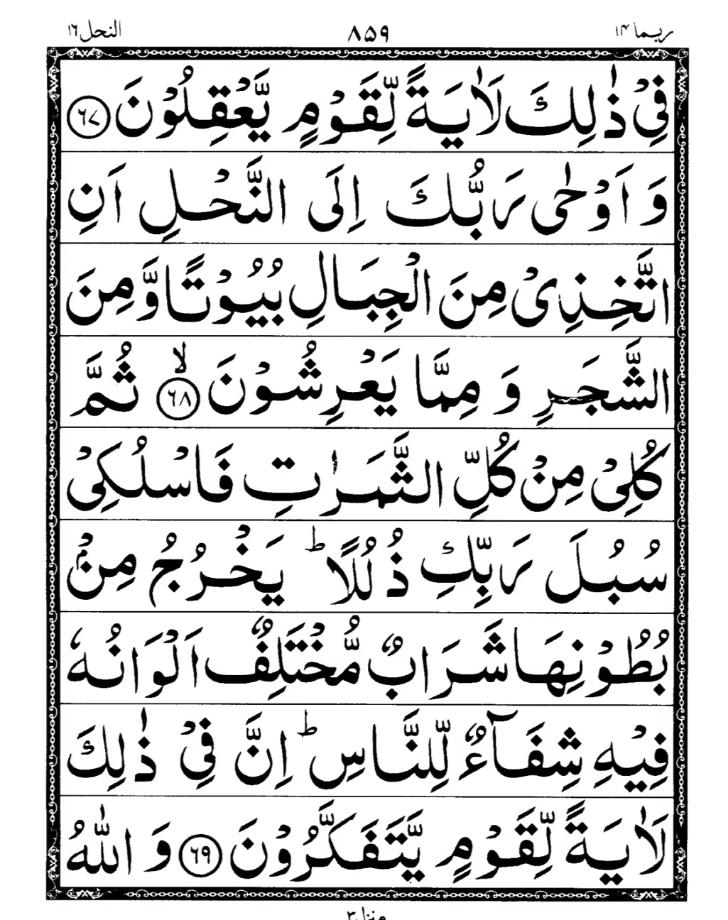 ربما ۱۴ ۸۵۹ النحل ۱۶
فِیْ ذٰلِكَ لَاٰیَةً لِّقَوْمٍ یَّعْقِلُوْنَ ﴿۶۷﴾
وَ اَوْحٰی رَبُّكَ اِلَی النَّحْلِ اَنِ
اتَّخِذِیْ مِنَ الْجِبَالِ بُیُوْتًا وَّ مِنَ
الشَّجَرِ وَ مِمَّا یَعْرِشُوْنَ ۙ﴿۶۸﴾ ثُمَّ
كُلِیْ مِنْ كُلِّ الثَّمَرٰتِ فَاسْلُكِیْ
سُبُلَ رَبِّكِ ذُلُلًا ؕ یَخْرُجُ مِنْۢ
بُطُوْنِهَا شَرَابٌ مُّخْتَلِفٌ اَلْوَانُهٗ
فِیْهِ شِفَآءٌ لِّلنَّاسِ ؕ اِنَّ فِیْ ذٰلِكَ
لَاٰیَةً لِّقَوْمٍ یَّتَفَكَّرُوْنَ ﴿۶۹﴾ وَ اللّٰهُ
منزل ۳